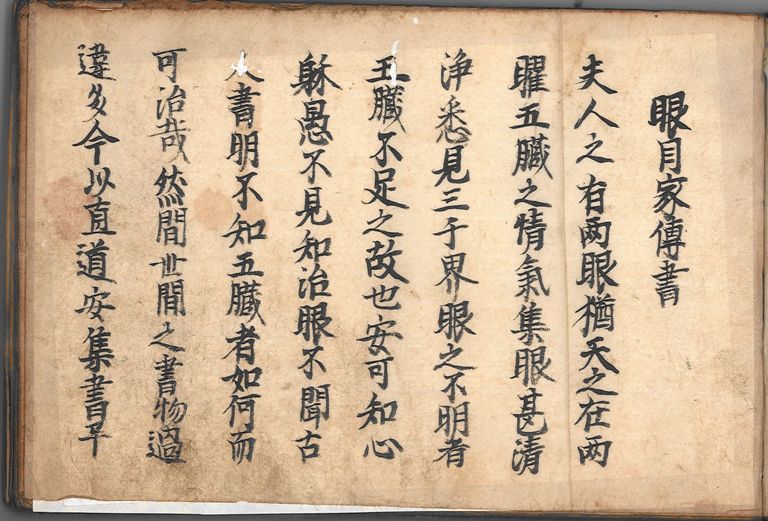 眼目家傳書
夫人之有両眼猶天之在两
曜五臓之情氣集眼甚清
浄悉見三千界眼之不明者
五臓不足之故也安可知心
躰愚不見知治眼不聞古
人書明不知五臓者如何而
可治哉然間世間之書物過
違多今以直道安集書早